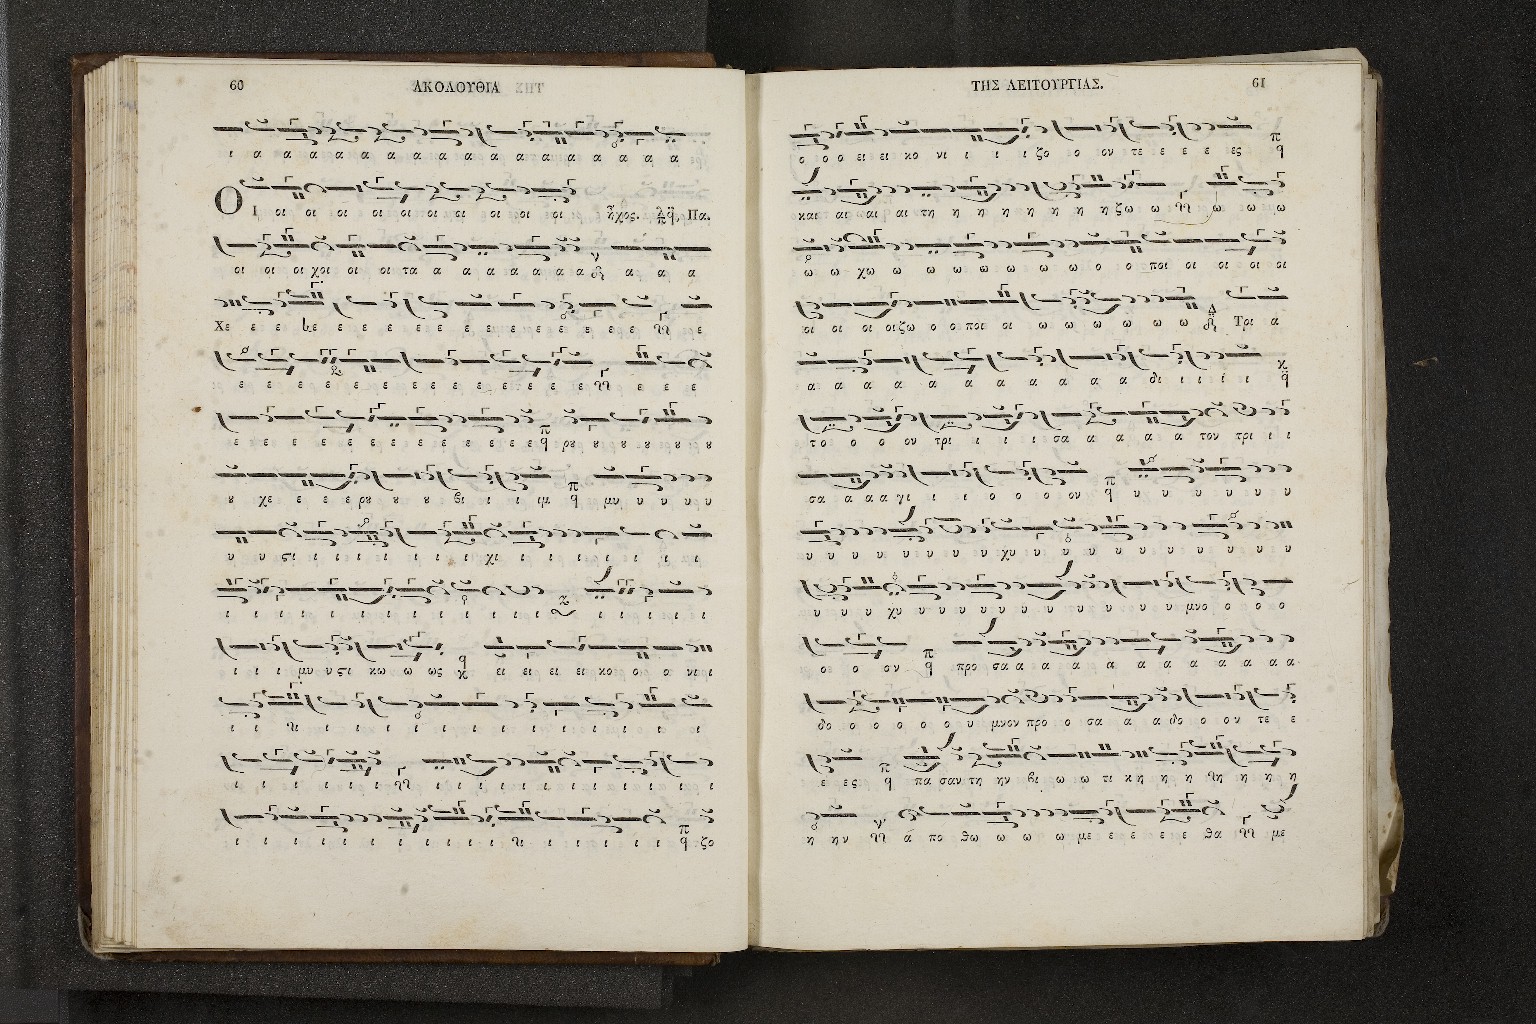 60 ΑΚΟΛΟΥΘΙΑ
ι α α α α α α α α α α α α α α α α α
ΟΙ οι οι οι οι οι οι οι οι οι οι ἦχος. Πα.
οι οι οι χοι οι οι τα α α α α α α α α α α
Χε ε ε ε ε ε ε ε ε ε ε ε ε ε ε ε ε ε
ε ε ε ε ε ε ε ε ε ε ε ε ε ε ε ε ε
ε ε ε ε ε ε ε ε ε ε ε ε ρȣ ȣ ȣ ȣ ȣ ȣ
ȣ χε ε ε ε ρȣ ȣ ȣ βι ι ι ιμ μυ υ υ υ υ
υ υ ϛι ι ι ι ι ι ι χι ι ι ι ι ι ι ι ι
ι ι ι ι ι ι ι ι ι ι ι ι ι ι ι ι ι
ι ι ι μυ υ ϛι κω ω ως ει ει ει ει κο ο ο ο νι ι
ι ι ι ι ι ι ι ι ι ι ι ι ι ι
ι ι ι ι ι ι ι ι ι ι ι ι ι ι ι ι ι
ι ι ι ι ι ι ι ι ι ι ι ι ι ι ι ι ζο
ΤΗΣ ΛΕΙΤΟΥΡΓΙΑΣ. 61
ο ο ο ει ει κο νι ι ι ι ζο ο ον τε ε ε ε ες
και αι αι αι τη η η η η η η η ζω ω ω ω ω
ω ω χω ω ω ω ω ω ω ω ο ο ποι οι οι οι οι
οι οι οι οι ζω ο ο ποι οι ω ω ω ω ω ω ω Τρι α
α α α α α α α α α α α α δι ι ι ι ι
το ο ο ο ον τρι ι ι ι σα α α α α τον τρι ι ι
σα α α α γι ι ι ο ο ο ον υ υ υ υ υ υ υ
υ υ υ υ υ υ υ υ χυ υ υ υ υ υ υ υ υ υ υ
υ υ υ χυ υ υ υ υ υ υ υ υ υ υ υ μνο ο ο ο
οε ο ον προ σα α α α α α α α α α α α α
δο ο ο ο ο ο υ μνον προ ο σα α α α δο ο ον τε ε
ε ες πα σαν τη ην βι ω ω τι κη η η η η η η
η ην ά πο θω ω ω ω ω με ε ε ε ε θα με